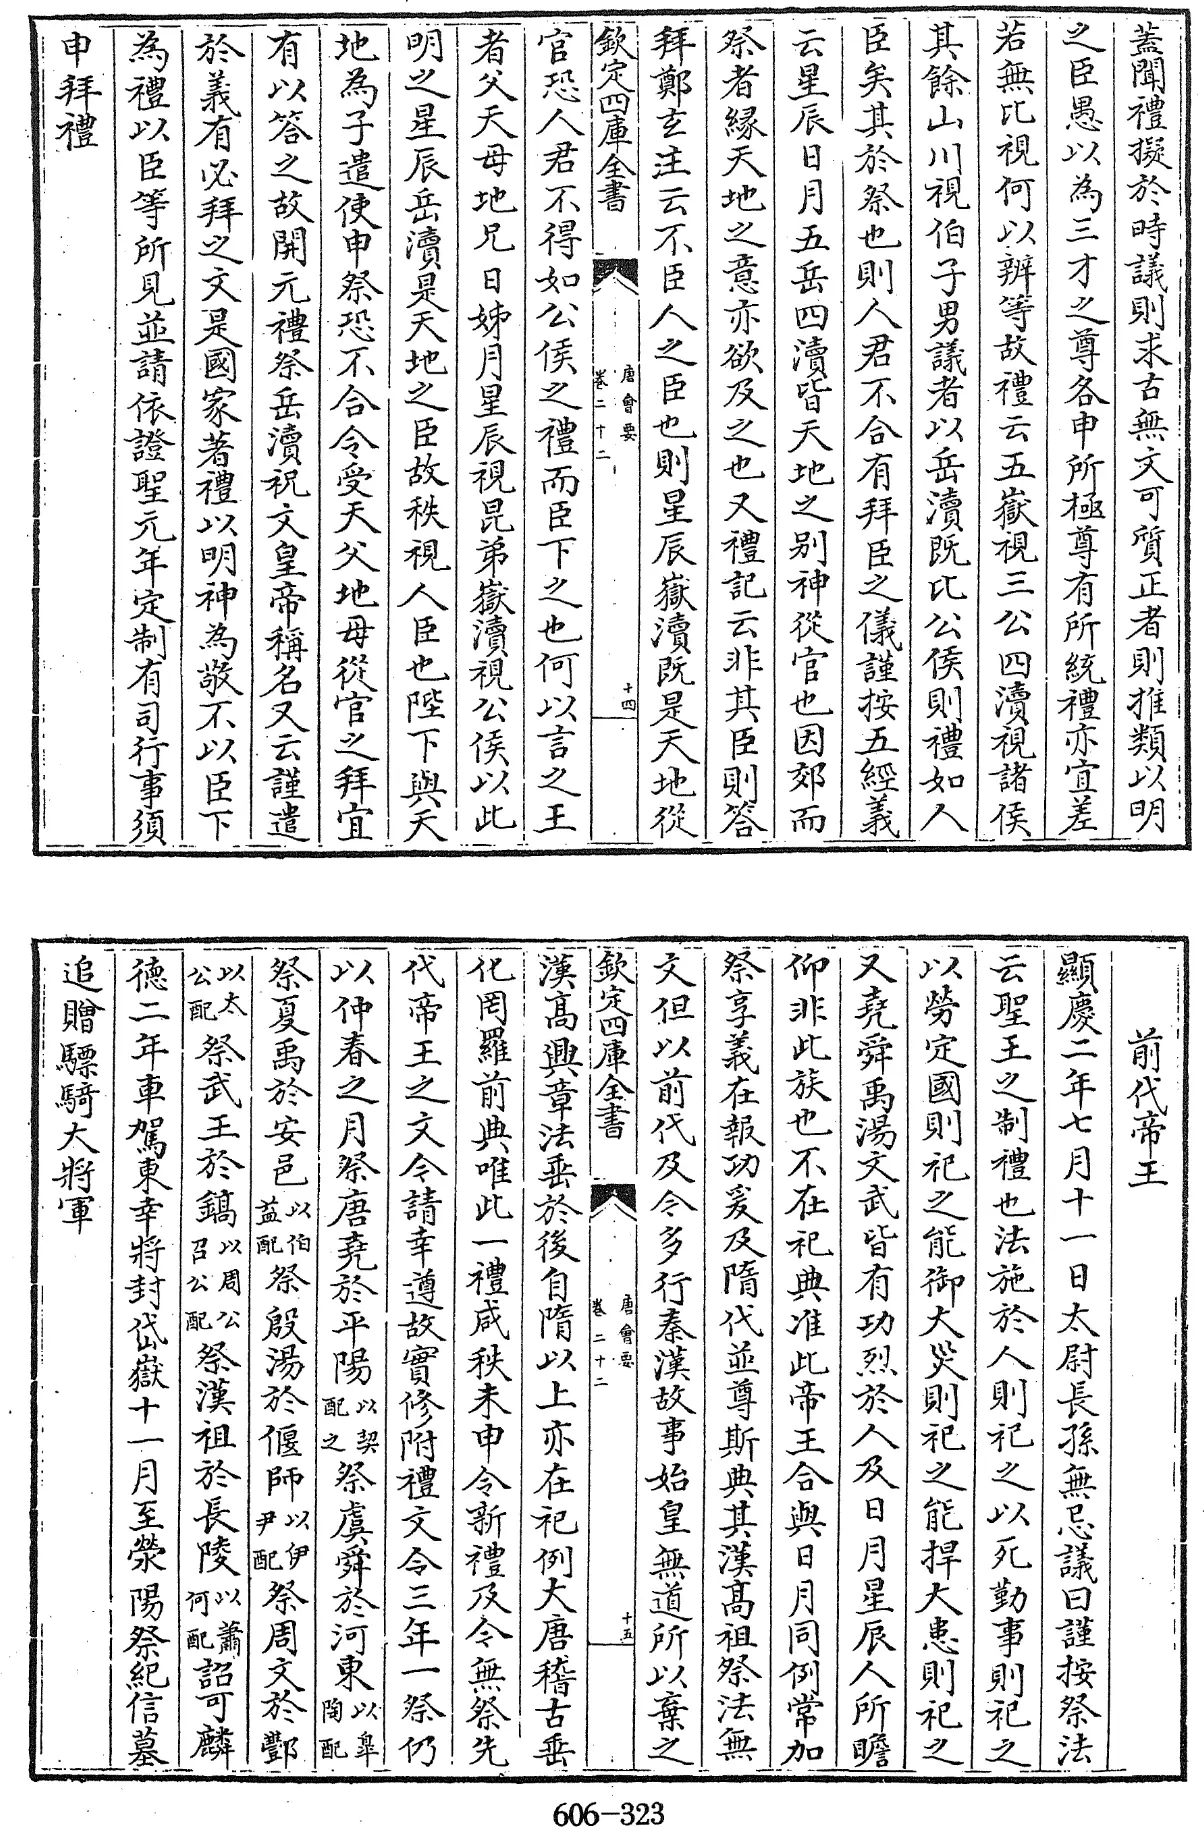 蓋聞禮擬於時議則求古無文可質正者則推類以明
之臣愚以為三才之尊各申所極尊有所統禮亦宜差
若無比視何以辨等故禮云五嶽視三公四瀆視諸侯
其餘山川視伯子男議者以岳瀆既比公侯則禮如人
臣矣其於祭也則人君不合有拜臣之儀謹按五經義
云星辰日月五岳四瀆皆天地之别神從官也因郊而
祭者緣天地之意亦欲及之也又禮記云非其臣則答
拜鄭玄注云不臣人之臣也則星辰嶽瀆既是天地從
欽定四庫全書
唐會要
卷二十二
十四
官恐人君不得如公侯之禮而臣下之也何以言之王
者父天母地兄日姊月星辰視昆弟嶽瀆視公侯以此
明之星辰岳瀆是天地之臣故秩視人臣也陛下與天
地為子遣使申祭恐不合令受天父地母從官之拜宜
有以答之故開元禮祭岳瀆祝文皇帝稱名又云謹遣
於義有必拜之文是國家著禮以明神為敬不以臣下
為禮以臣等所見並請依證聖元年定制有司行事須
申拜禮
前代帝王
顯慶二年七月十一日太尉長孫無忌議曰謹按祭法
云聖王之制禮也法施於人則祀之以死勤事則祀之
以勞定國則祀之能御大災則祀之能捍大患則祀之
又堯舜禹湯文武皆有功烈於人及日月星辰人所瞻
仰非此族也不在祀典准此帝王合與日月同例常加
祭享義在報功爰及隋代並尊斯典其漢高祖祭法無
文但以前代及今多行秦漢故事始皇無道所以棄之
欽定四庫全書
唐會要
卷二十二
十五
漢高興章法垂於後自隋以上亦在祀例大唐稽古垂
化罔羅前典唯此一禮咸秩未申今新禮及令無祭先
代帝王之文今請幸遵故實修附禮文令三年一祭仍
以仲春之月祭唐堯於平陽以契配之祭虞舜於河東以臯陶配
祭夏禹於安邑以伯益配祭殷湯於偃師以伊尹配祭周文於酆
以太公配祭武王於鎬以周公召公配祭漢祖於長陵以蕭何配詔可麟
德二年車駕東幸將封岱嶽十一月至滎陽祭紀信墓
追贈驃騎大將軍
606-323